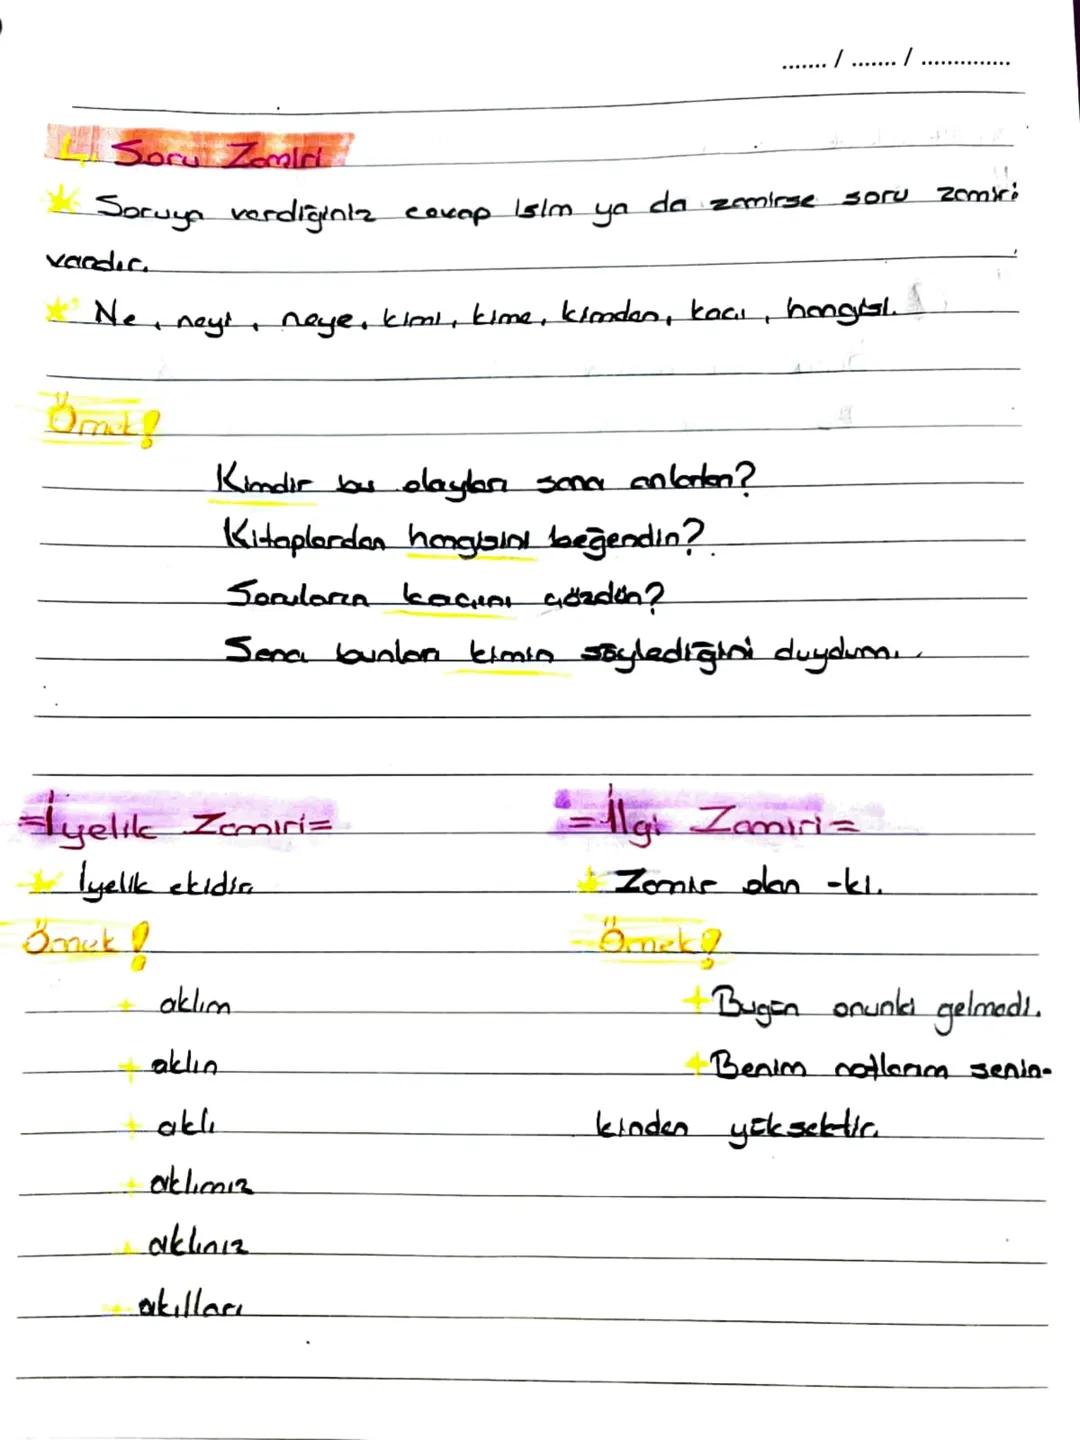 ....... / ....... / ..............
4. Soru Zamiri
Soruya verdiğiniz cevap isim ya da zamirse soru zamiri
vardır.
Ne, neyi, neye, kimi, kime, kimden, kaçı, hangisi.
Örnek!
Kimdir bu olayları sana anlatan?
Kitaplardan hangisini beğendin?
Soruların kaçını çözdün?
Sana bunları kimin söylediğini duydum.
=İyelik Zamiri=
İyelik ekidir.
Örnek!
+ aklım
+ aklın
+ aklı
+ aklımız
+ aklınız
+ akılları
=İlgi Zamiri=
Zamir olan -ki.
Örnek!
+ Bugün onunki gelmedi.
+ Benim notlarım senin-
kinden yüksektir.